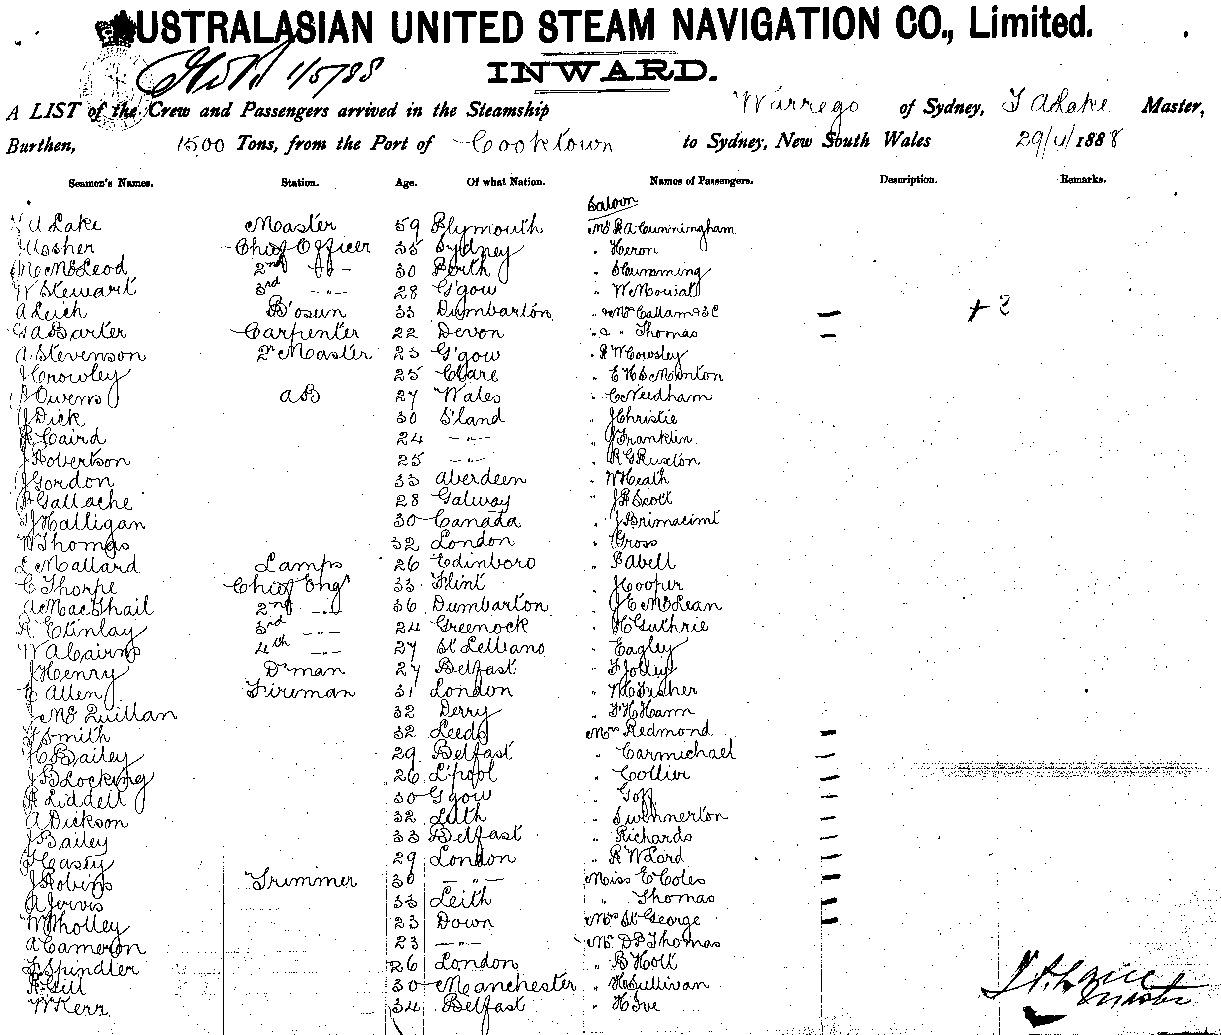 AUSTRALASIAN UNITED STEAM NAVIGATION CO., Limited.
1/5/88 INWARD.
A LIST of the Crew and Passengers arrived in the Steamship Warrego of Sydney, T A Lake Master,
Burthen, 1500 Tons, from the Port of Cooktown to Sydney, New South Wales 29/4/1888
Seamen's Names. Station. Age. Of what Nation. Names of Passengers. Description. Remarks.
Saloon
T A Lake Master 59 Plymouth Mr R A Cunningham
J Usher Chief Officer 35 Sydney " Heron
M McLeod 2nd -"- 30 Perth " Cumming
W Stewart 3rd -"- 28 G'gow " W Mowiat
A Leich B'osun 33 Dumbarton " & Mrs Callam & 3C — + 2
G A Barter Carpenter 22 Devon " & " Thomas —
A Stevenson Master 23 G'gow " R W Cowsley
J Crowley 25 Clare " Minton
Owens AB 27 Wales " C Needham
J Dick 30 S'land " J Christie
R Caird 24 -"- " J Franklin
J Robertson 25 -"- " R G Ruxton
J Gordon 33 Aberdeen " W Heath
P Gallache 28 Galway " J R Scott
J Halligan 30 Canada " J Brimacimt
W Thomas 32 London " Gross
L Mallard Lamps 26 Edinboro " Pavell
C Thorpe Chief Engr 33 Flint " J Cooper
A MacPhail 2nd -"- 36 Dumbarton " J E McLean
R E Finlay 3rd -"- 24 Greenock " H Guthrie
W A Cairns 4th -"- 27 St " Eagley
J Henry D'man 27 Belfast " F Jolley
E Allen Fireman 31 London " W C Fisher
J McQuillan 32 Derry " F H Hann
F Smith 32 Leeds Mrs Redmond —
H C Bailey 29 Belfast " Carmichael —
J B Locking 26 L'pool " Collier —
R Liddell 30 G'gow " Goff —
A Dickson 32 Leith " Swinnerton —
J Bailey 33 Belfast " Richards —
T Casey 29 London " R W Lord —
J Robins Trimmer 30 -"- Miss E Coles —
A Jervis 33 Leith " Thomas —
W Tholley 23 Down Mrs St George —
A Cameron 23 -"- Mr D P Thomas
F Spindler 26 London " B Holt
R Gill 30 Manchester " H Sullivan
W Kerr 34 Belfast " H Ive
T A Lake
Master